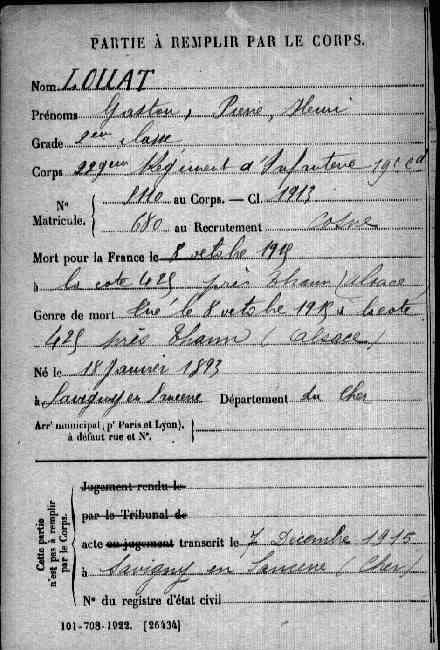 PARTIE À REMPLIR PAR LE CORPS.
Nom LOUAT
Prénoms Gaston, Pierre, Henri
Grade 2em classe
Corps 229em Régiment d'Infanterie
N° Matricule. { 5110 au Corps. — Cl. 1913
680 au Recrutement Cosne
Mort pour la France le 8 octobre 1915
à la cote 425 près Thann (Alsace)
Genre de mort Tué le 8 octobre 1915 à la cote
425 près Thann (Alsace)
Né le 18 Janvier 1893
à Savigny en Sancerre Département du Cher
Arrt municipal (pr Paris et Lyon),
à défaut rue et N°.
Cette partie n'est pas à remplir par le Corps.
Jugement rendu le
par le Tribunal de
acte ou jugement transcrit le 7 Décembre 1915
à Savigny en Sancerre (Cher)
N° du registre d'état civil
101-708-1922. [26434]